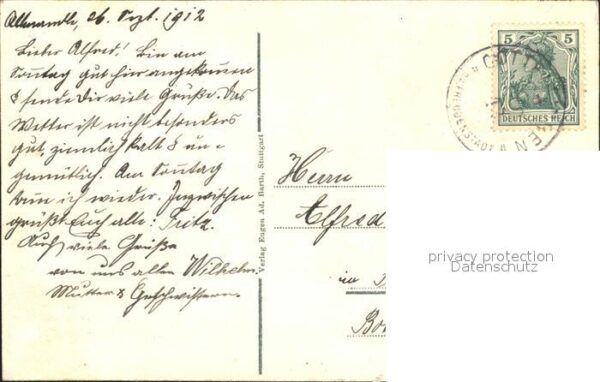 26. Sept. 1912
Lieber Alfred! Bin am
Sonntag gut hier angekommen
& sende Dir viele Grüße. Das
Wetter ist nicht besonders
gut, ziemlich kalt & un-
gemütlich. Am Sonntag
komm ich wieder. Inzwischen
grüßt Euch alle: Fritz.
Auch viele Grüße
von uns allen Wilhelm
Mutter & Geschwistern
Verlag Eugen Ad. Barth, Stuttgart
5 5
DEUTSCHES REICH
Herrn
Alfred
in
privacy protection
Datenschutz